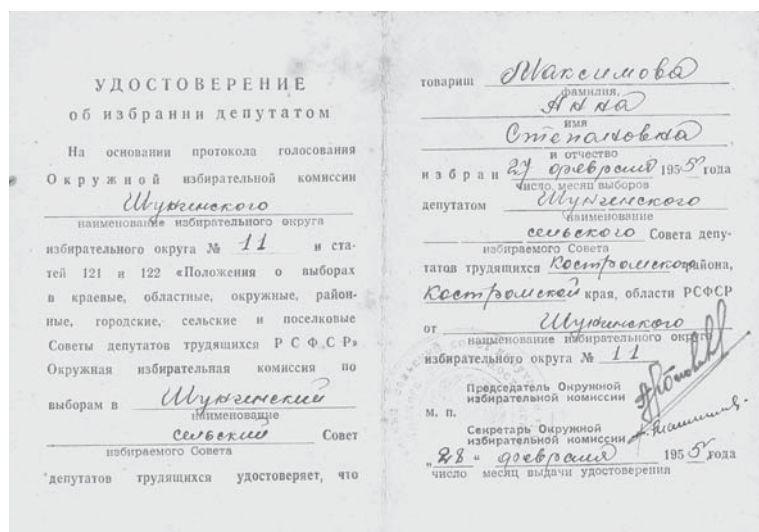 УДОСТОВЕРЕНИЕ
об избрании депутатом
На основании протокола голосования
Окружной избирательной комиссии
Шунгенского
наименование избирательного округа
избирательного округа № 11 и ста-
тей 121 и 122 «Положения о выборах
в краевые, областные, окружные, район-
ные, городские, сельские и поселковые
Советы депутатов трудящихся РСФСР»
Окружная избирательная комиссия по
выборам в Шунгенский
наименование
сельский Совет
избираемого Совета
депутатов трудящихся удостоверяет, что
товарищ Максимова
фамилия,
Анна
имя
Степановна,
и отчество
избран 27 февраля 1955 года
число, месяц выборов
депутатом Шунгенского
наименование
сельского Совета депу-
избираемого Совета
татов трудящихся Костромского района,
Костромской края, области РСФСР
от Шунгенского
наименование избирательного округа
избирательного округа № 11
Председатель Окружной
избирательной комиссии
М. п.
Секретарь Окружной
избирательной комиссии
„28“ февраля 1955 года
число месяц выдачи удостоверения